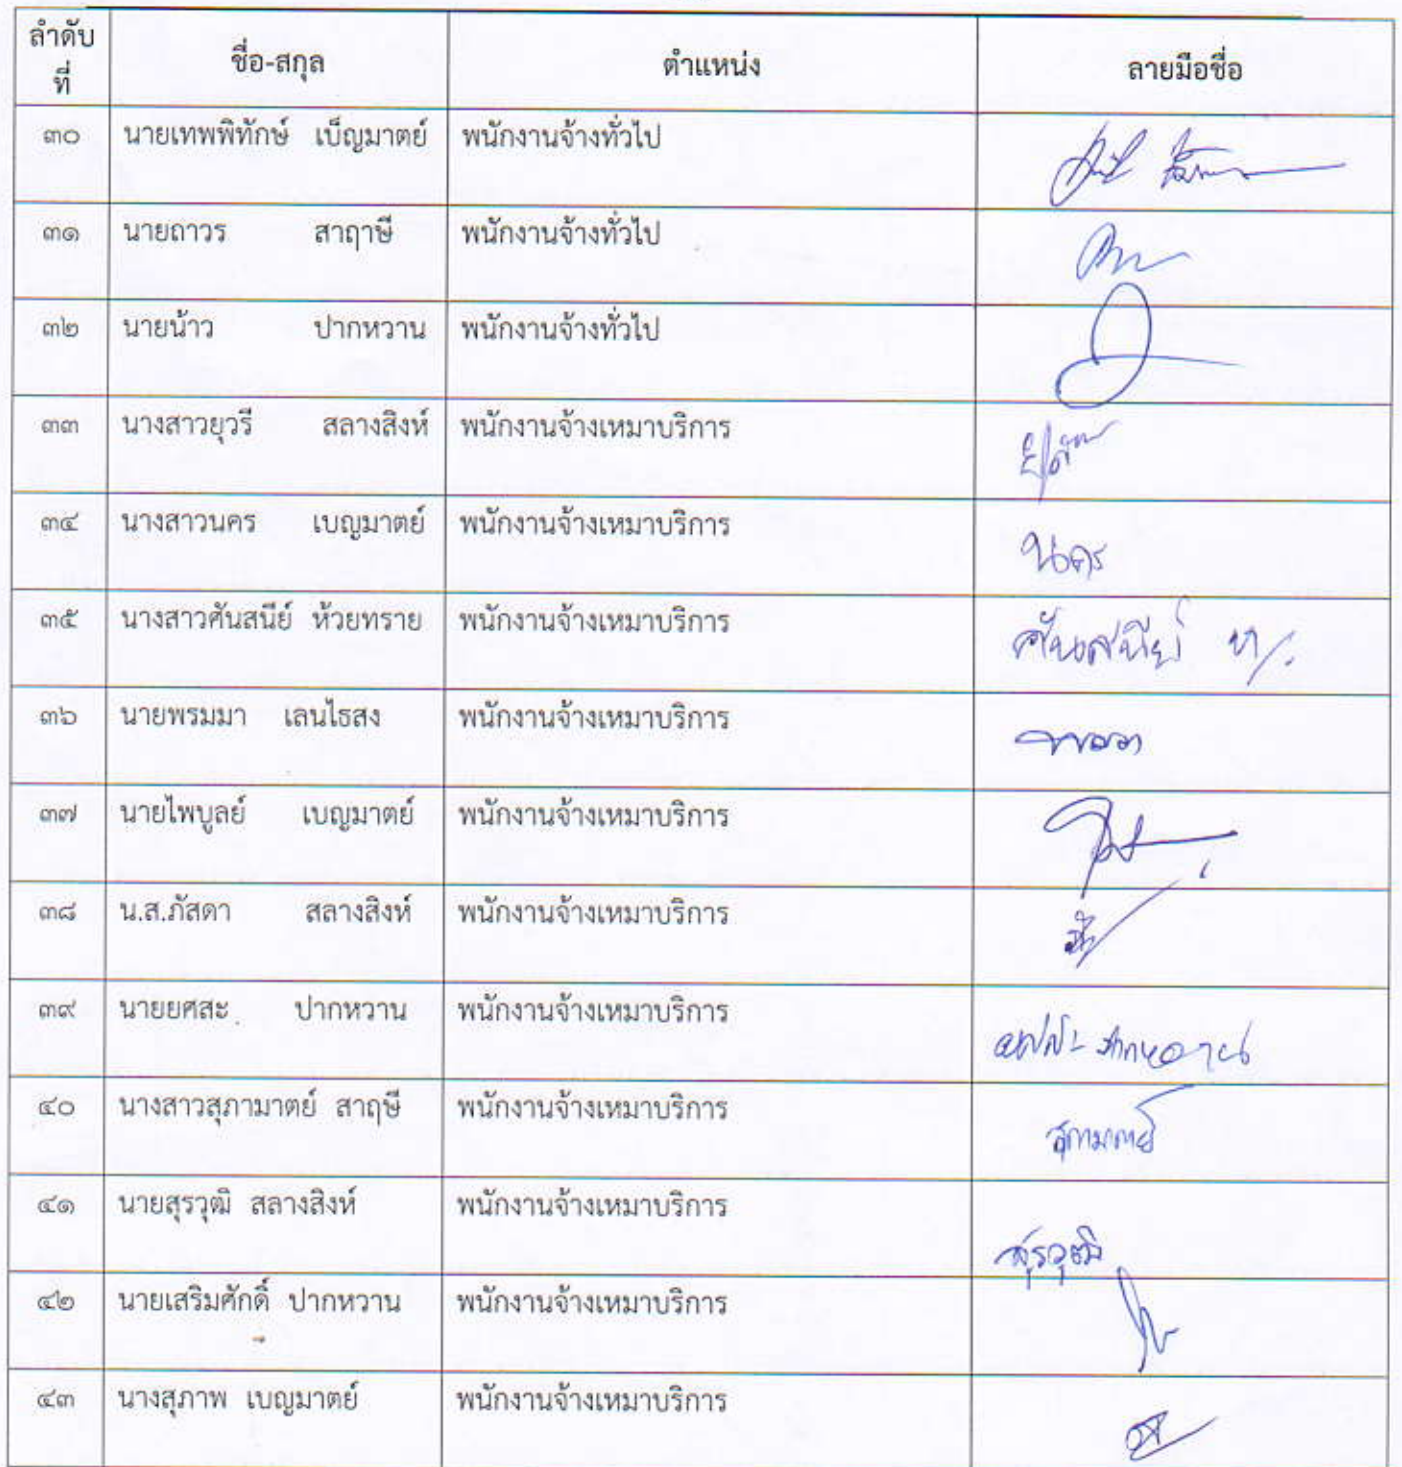 ลำดับ
ที่
ชื่อ-สกุล ตำแหน่ง ลายมือชื่อ
๓๐ นายเทพพิทักษ์ เบ็ญมาตย์ พนักงานจ้างทั่วไป
๓๑ นายถาวร สาฤาษี พนักงานจ้างทั่วไป
๓๒ นายน้าว ปากหวาน พนักงานจ้างทั่วไป
๓๓ นางสาวยุวรี สลางสิงห์ พนักงานจ้างเหมาบริการ
๓๔ นางสาวนคร เบญมาตย์ พนักงานจ้างเหมาบริการ นคร
๓๕ นางสาวศันสนีย์ ห้วยทราย พนักงานจ้างเหมาบริการ ศันสนีย์
๓๖ นายพรมมา เลนไธสง พนักงานจ้างเหมาบริการ
๓๗ นายไพบูลย์ เบญมาตย์ พนักงานจ้างเหมาบริการ
๓๘ น.ส.ภัสดา สลางสิงห์ พนักงานจ้างเหมาบริการ
๓๙ นายยศสะ ปากหวาน พนักงานจ้างเหมาบริการ ปากหวาน
๔๐ นางสาวสุภามาตย์ สาฤษี พนักงานจ้างเหมาบริการ สุภามาตย์
๔๑ นายสุรวุฒิ สลางสิงห์ พนักงานจ้างเหมาบริการ สุรวุฒิ
๔๒ นายเสริมศักดิ์ ปากหวาน พนักงานจ้างเหมาบริการ
๔๓ นางสุภาพ เบญมาตย์ พนักงานจ้างเหมาบริการ